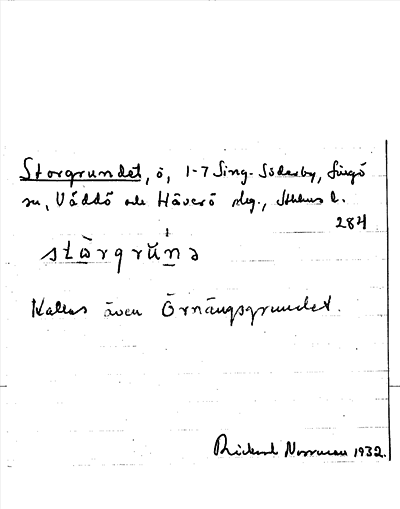 Storgrundet, ö, 1-7 Sing-Söderby, Singö
sn, Väddö och Häverö slg., Sthlms l.
284
stὼrgrŭ̀nə
Kallas även Örnängsgrundet.
Rickard Norrman 1932.